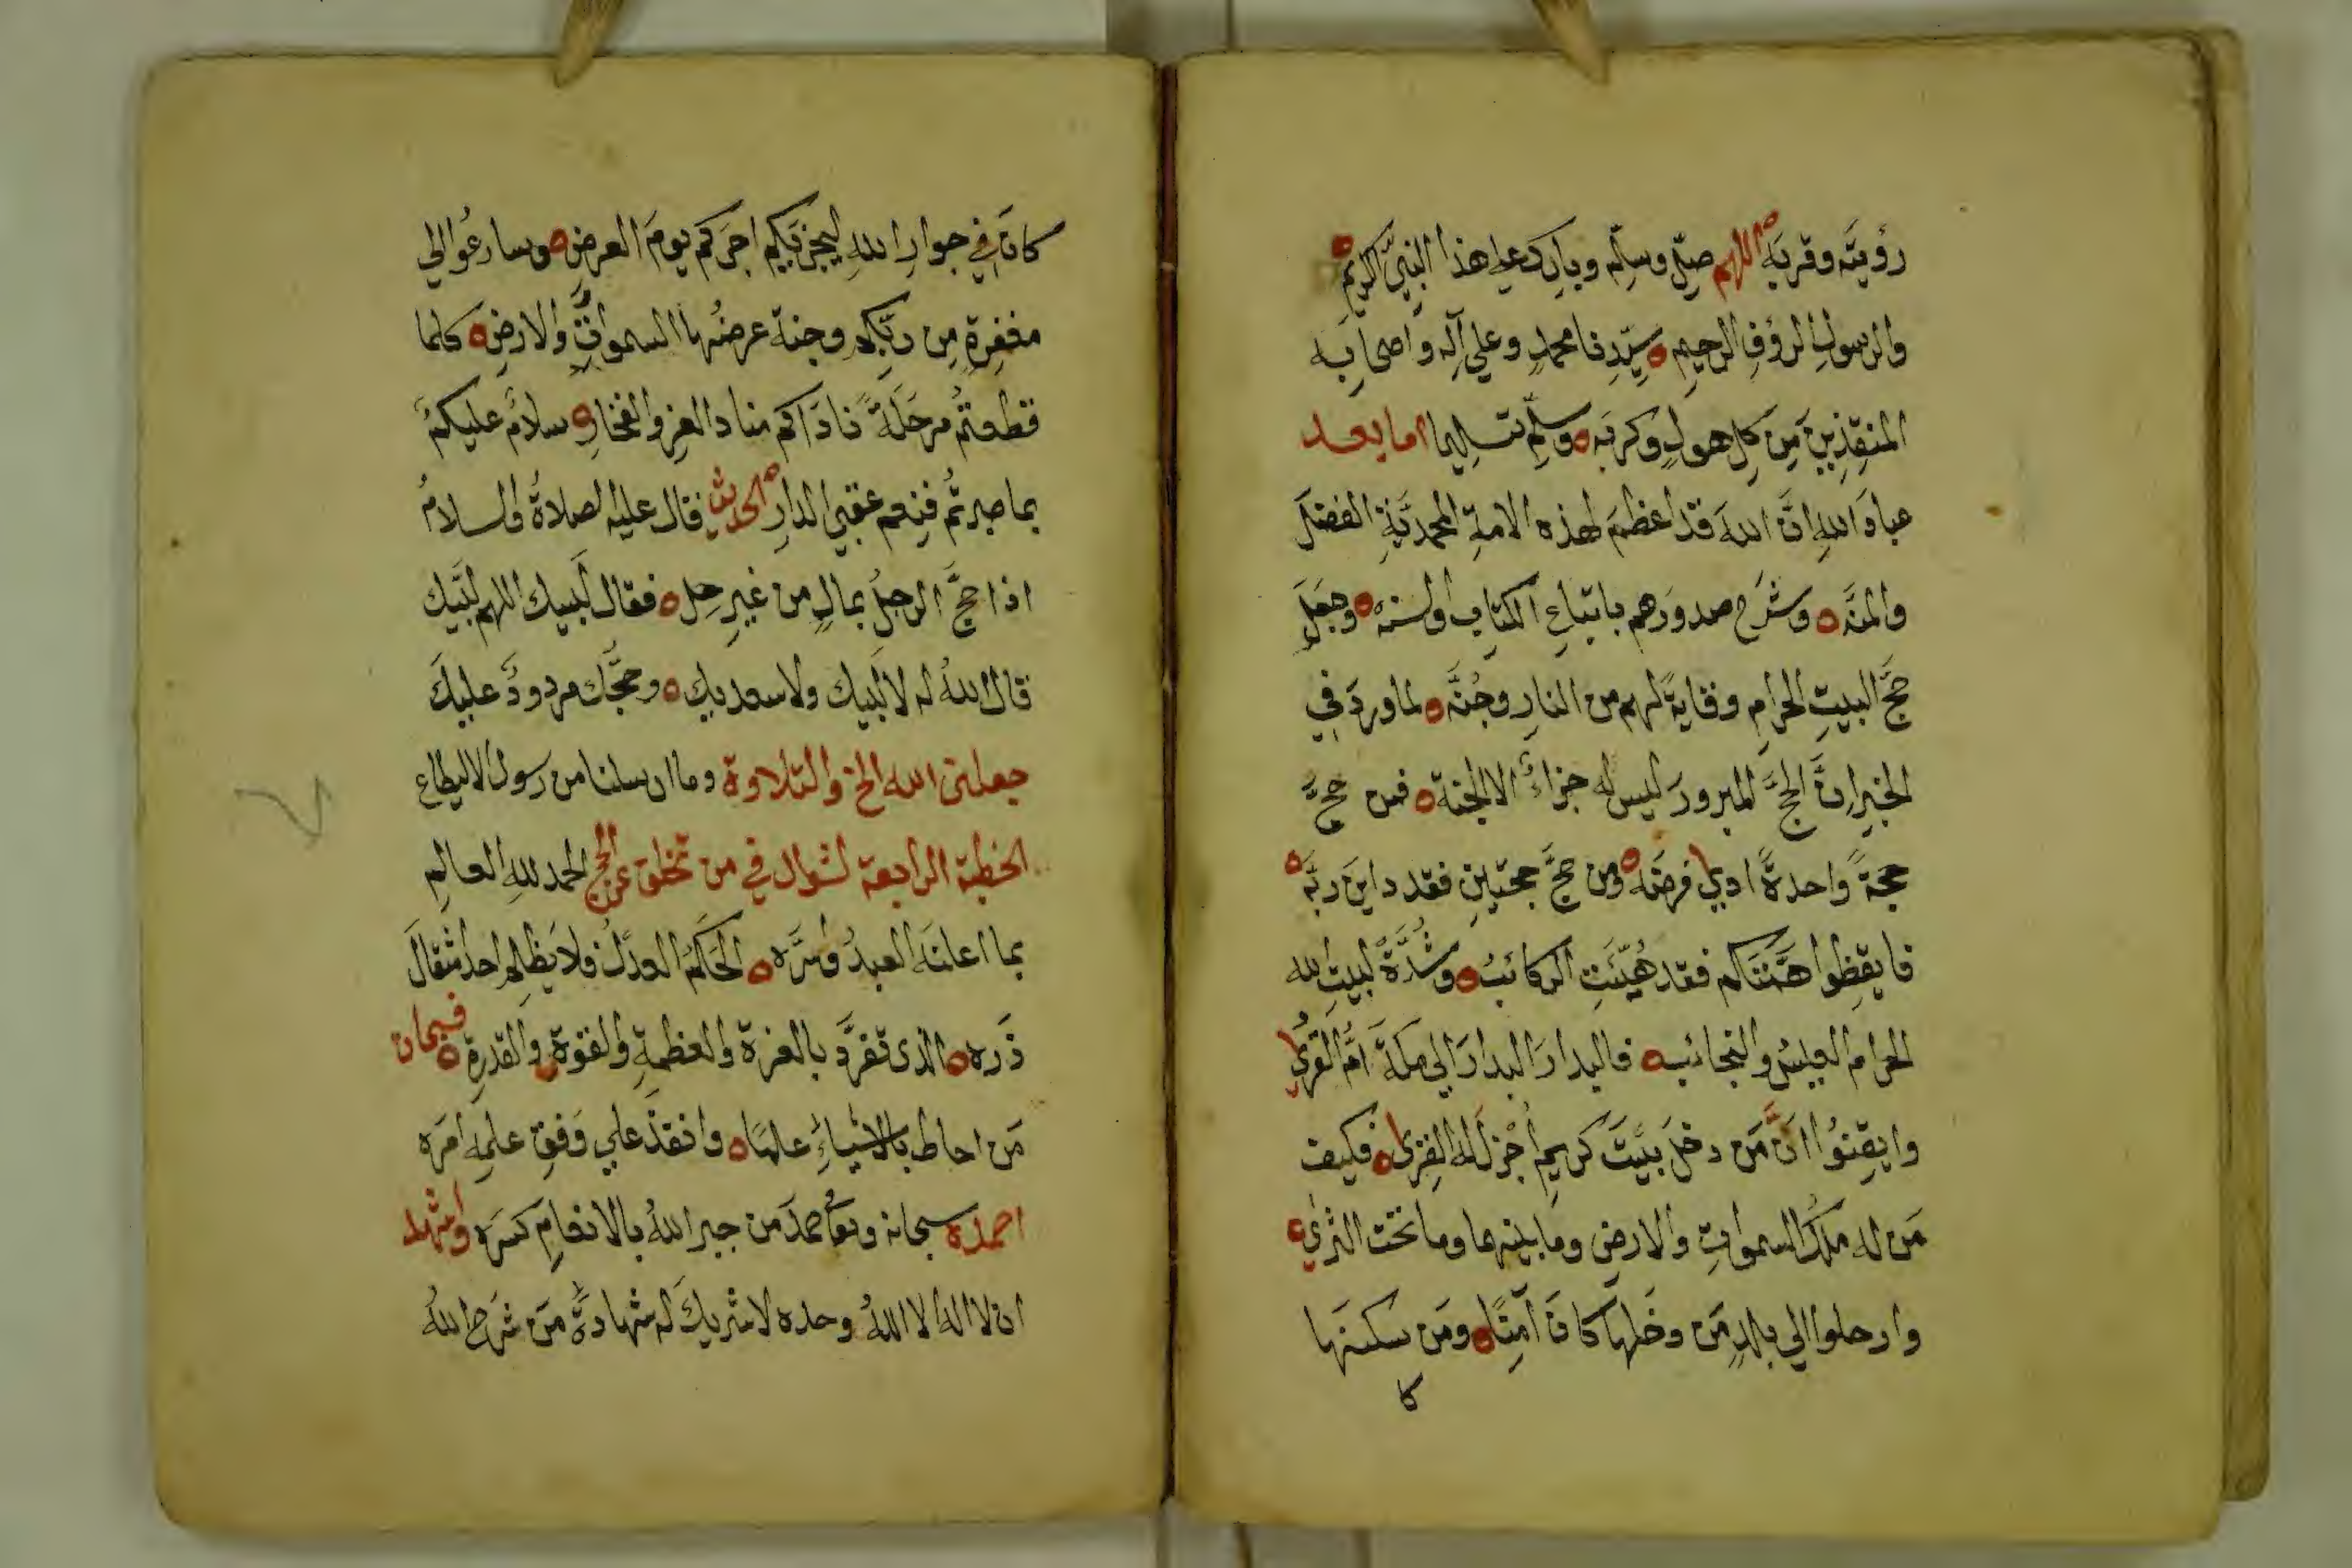 رؤيته وقربه اللهم صلّ وسلم وبارك على هذا النبيّ الكريم
والرسولِ الرؤفِ الرحيمِ سيّدنا محمدٍ وعلي آله وأصحابه
المنقذين مِن كلِ هولٍ وكربه وسلم تسليما اما بعد
عبادَ اللهِ انَّ اللهَ قد اعظمَ لهذه الامةِ المحمديَّةِ الفضلَ
والمنَّه وشرح صدورَهم باتباعِ الكتابِ والسنه وجعلَ
حجَّ البيتِ الحرامِ وقايةً لهم من النارِ وجُنَّه لما وردَ في
الخبرِ انَّ الحجَّ المبرورَ ليس له جزاءٌ الا الجنة فمن حجَّ
حجةً واحدةً ادي فرضَه ومن حجَّ حجتينِ فقد داينَ ربَّه
فايقظوا همَّتَكم فقد هُيّئَتِ الركائبُ وشُدَّةْ لبيتِ الله
الحرام العيسُ والنجائب فالبدارَ البدارَ الي مكةَ امَّ القُرىٰ
وايقِنُوا انَّ مَن دخلَ بيتَ كريمٍ أجْزلَ له القِرىٰ فكيف
مَن له ملكُ السمواتِ والارضِ وما بينهما وما تحت الثرىٰ
وارحلوا الي بلدٍ مَن دخلَها كانَ آمنًا ومَن سكنَها
كا
كانَ في جوارِ اللهِ ليجزيَكم اجرَكم يومَ العرضِ وسارعُوا الي
مغفرةٍ مِن ربِّكم وجنة عرضُها السمواتُ والارضِ كلما
قطعتُم مرحَلَةً ناداكم مناد العزِ والفخارِ سلامٌ عليكمْ
بما صبرتُم فنِعم عقبي الدارِ الحديث قال عليه الصلاةُ والسلامُ
اذا حجَّ الرجلُ بمالٍ من غيرِ حِل فقال لَبيك اللهم لبَّيك
قال اللهُ له لا لَبيك ولا سعديك وحجَّك مردودٌ عليكَ
جعلنى الله الخ والتلاوة وما ارسلنا من رسول الا ليطاع
الخطبة الرابعة لشوال في من تخلق عن الحج الحمد للهِ العالمِ
بما اعلنَه العبدُ واسَرَّه الحَكَمُ العدلُ فلا يَظلم احد مثقالَ
ذَره الذى تفرَّد بالعزة والعظمةِ والقوة والقدرةِ فسبحان
مَن احاط بالاشياءِ علمًا وانفذَ علي وَفقِ علمِه امرَه
احمده سبحانه وتعا حمدَ من جبر اللهُ بالانعامِ كسَره واشهد
ان لا اله الا اللهُ وحده لا شريكَ له شهادةَ مَن شرَح اللهُ